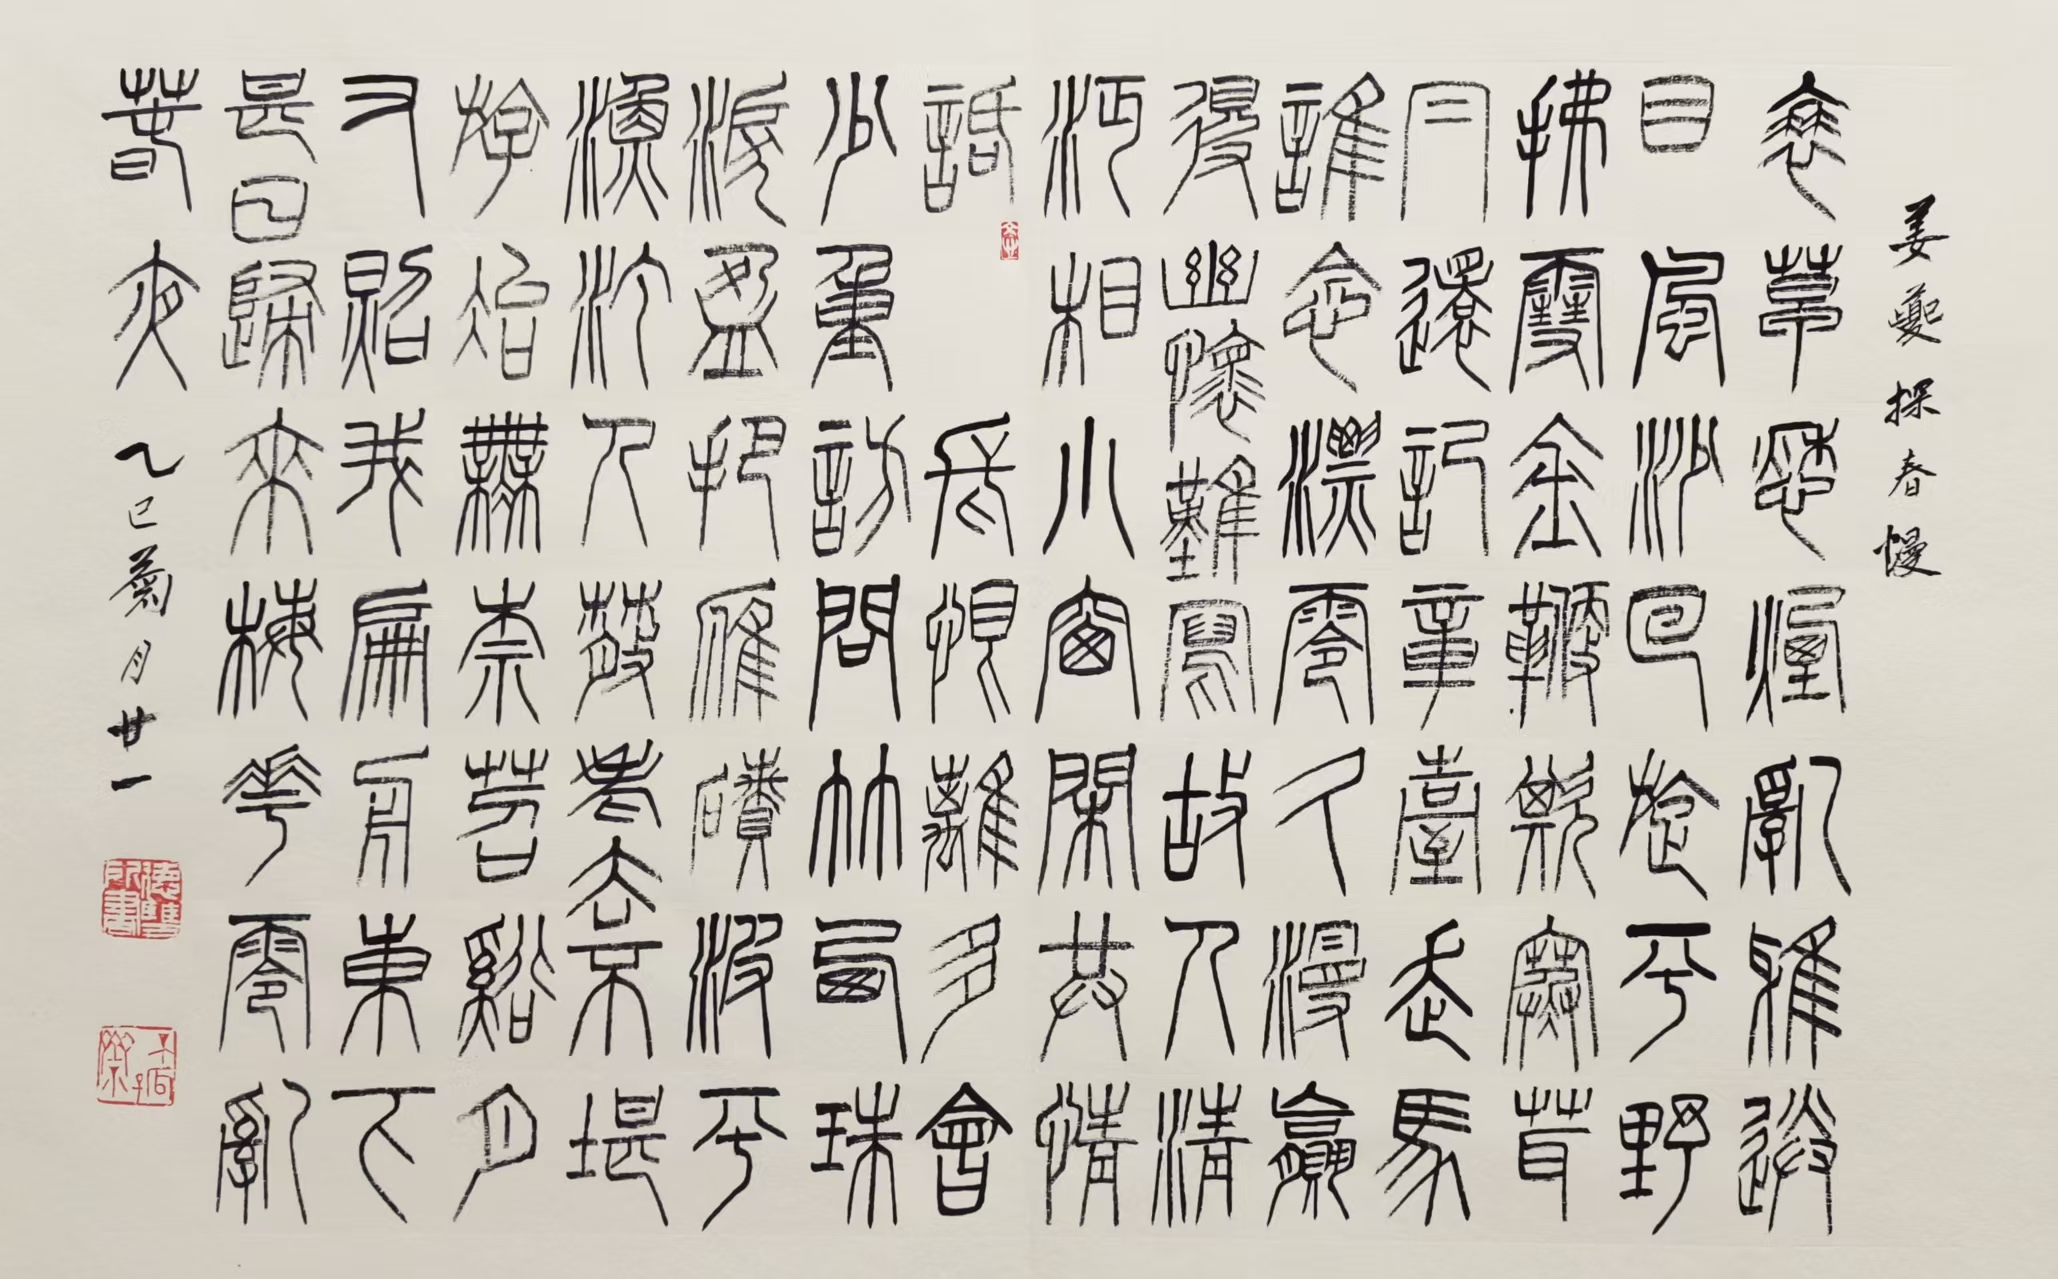 姜夔探春慢
衰草愁煙亂鴉送
日風沙回旋平野
拂雪金鞭欺寒茸
冃還記章臺走馬
誰念漂零久漫贏
得幽懷難寫故人清
沔相小窗閒共情
話 長恨離多會
少重訪問竹西珠
淚盈把雁磧波平
漁汀人散老去不堪
游冶無奈苕溪月
又照我扁舟東下
甚日歸來梅花零亂
春夜 乙巳菊月廿一